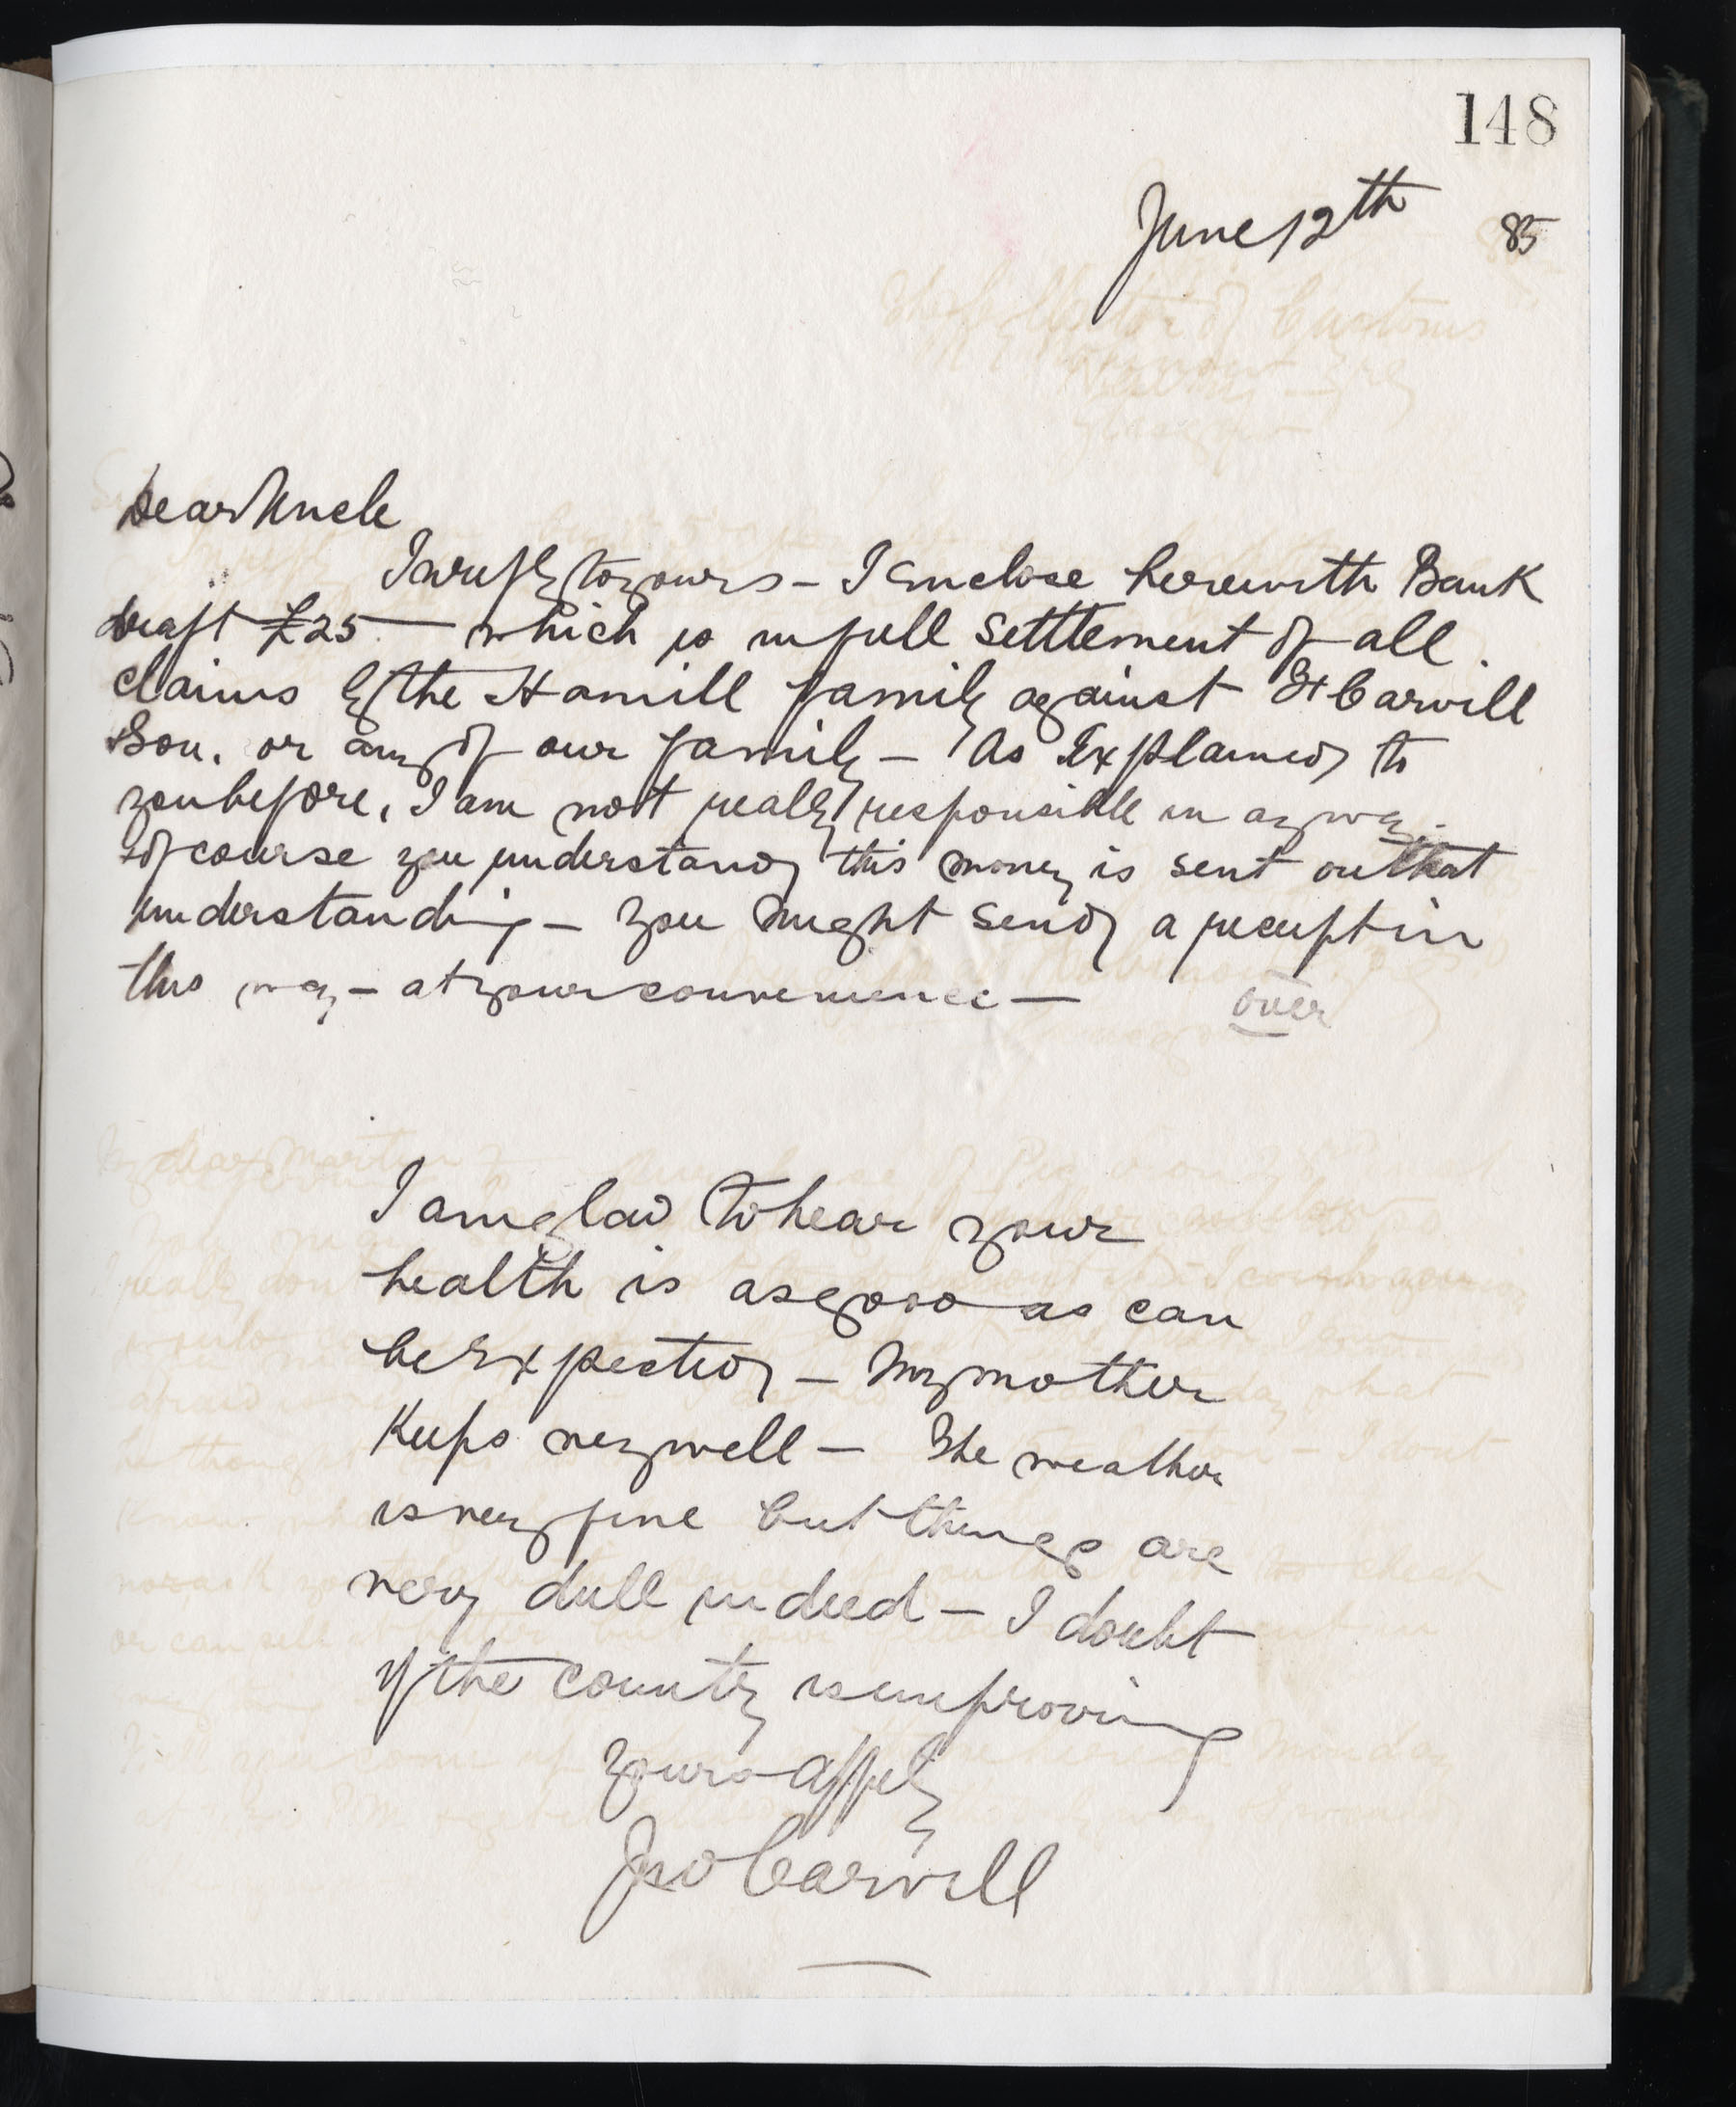 148
June 12th 85
Dear Uncle
In reply to yours - I enclose herewith Bank
draft £25 - which is in full settlement of all
claims by the Hamill family against Carvill
Son. or any of our family - As Explained to
you before, I am not really responsible in any way.
of course you understand this money is sent on that
understanding - You might send a receipt in
this way - at your convenience -
over
I am glad to hear your
health is as good as can
be Expected - My mother
Keeps very well - The weather
is very fine but things are
very dull indeed - I doubt
if the country is improving
Yours affly
Jno Carvill